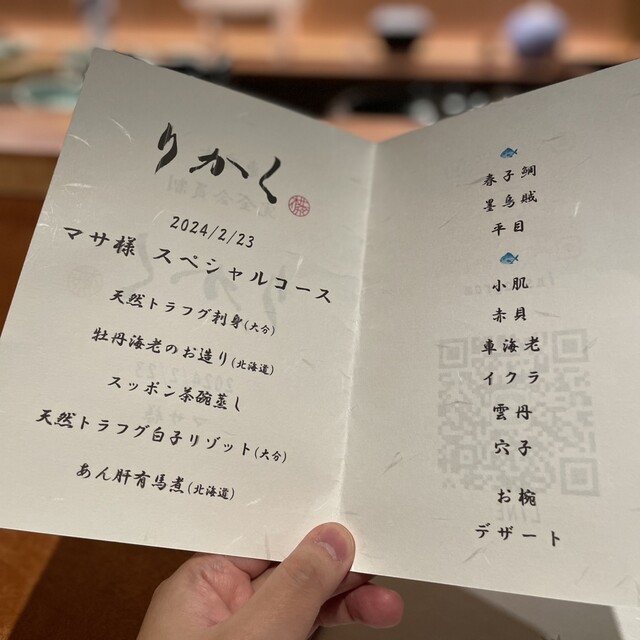 りかく
2024/2/23
マサ様 スペシャルコース
天然トラフグ刺身(大分)
牡丹海老のお造り(北海道)
スッポン茶碗蒸し
天然トラフグ白子リゾット(大分)
あん肝有馬煮(北海道)
春子鯛
墨烏賊
平目
小肌
赤貝
車海老
イクラ
雲丹
穴子
お椀
デザート